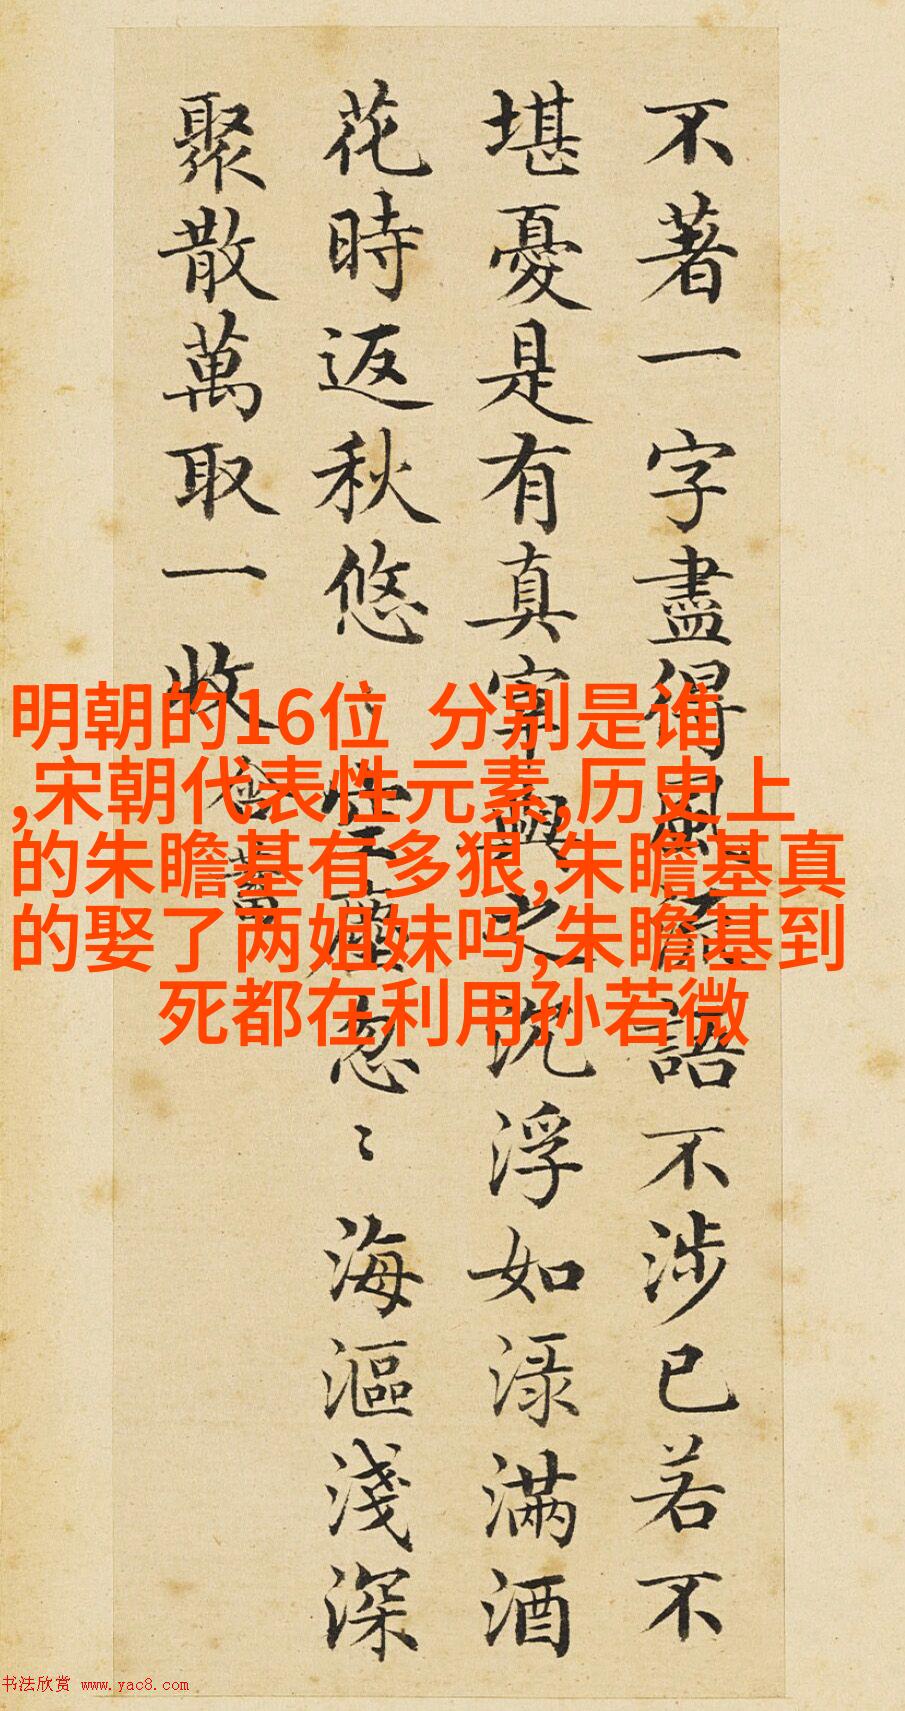 不著一字盡得風流語不涉已若不
堪憂是有真宰與之沉浮如淥滿酒
花時返秋悠〻空塵忽〻海漚淺深
聚散萬取一收
明朝的16位 分别是谁
,宋朝代表性元素,历史上
的朱瞻基有多狠,朱瞻基真
的娶了两姐妹吗,朱瞻基到
死都在利用孙若微
书法欣赏 www.yac8.com